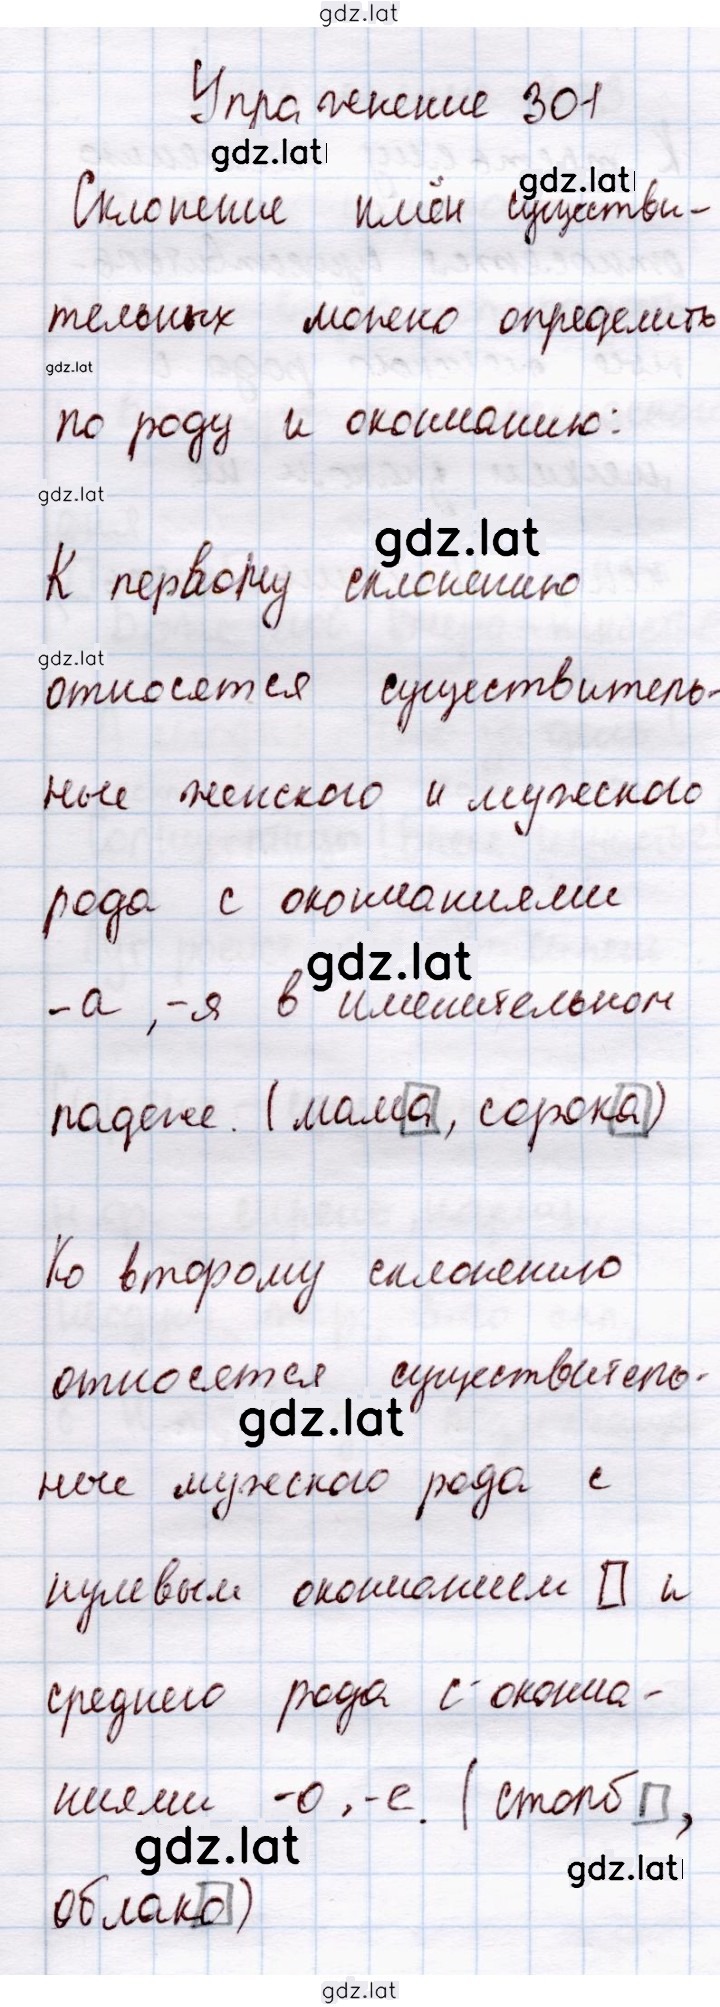 gdz.lat
Упражнение 301
gdz.lat
gdz.lat
Склонение имён существи-
тельных можно определить
gdz.lat
по роду и окончанию:
gdz.lat
gdz.lat
К первому склонению
gdz.lat
относятся существитель-
ные женского и мужского
рода с окончаниями
gdz.lat
-а, -я в именительном
падеже. (мама, сорока)
Ко второму склонению
относятся существитель-
gdz.lat
ные мужского рода с
нулевым окончанием и
среднего рода с оконча-
ниями -о, -е. (столб ,
gdz.lat
gdz.lat
облако)
gdz.lat